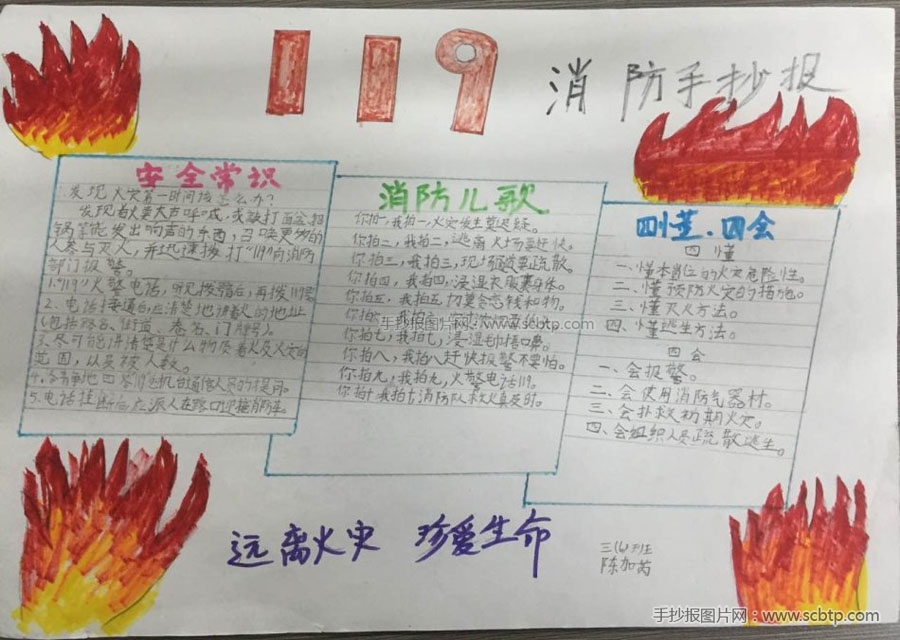 119
消防手抄报
安全常识
发现火灾第一时间该怎么办?
发现着火要大声呼喊,或敲打面盆、
锅等能发出响声的东西,召唤更多的
人参与灭火,并迅速拨打"119"向消防
部门报警。
1."119"火警电话,
2.电话接通后,应清楚地讲着火的地址
(包括路名、街面、巷名、门牌号)。
3.尽可能讲清楚是什么物质着火及火灾的
范围,以及被 人数。
4.冷静地回答消 通信人员的提问。
5.电话挂断后,应派人在路口迎接消防车。
消防儿歌
你拍一,我拍一,火灾发生莫迟疑。
你拍二,我拍二,逃离火场要
你拍三,我拍三,现场 要疏散。
你拍四,我拍四,浸湿衣服裹身体。
你拍五,我拍五,切莫贪恋钱和物。
手抄报图片网:www.scbtp.com
你拍七,我拍七,浸湿 捂口鼻。
你拍八,我拍八,赶快报警不要怕。
你拍九,我拍九,火警电话119。
你拍十,我拍十,消防队救火真及时。
四懂、四会
四懂
一、懂本岗位的火灾危险性。
二、懂预防火灾的措施。
三、懂灭火方法。
四、懂逃生方法。
四会
一、会报警。
二、会使用消防器材。
三、会扑救初期火灾。
四、会组织人员疏散逃生。
远离火灾 珍爱生命
三(6)班
陈加芮
手抄报图片网:www.scbtp.com